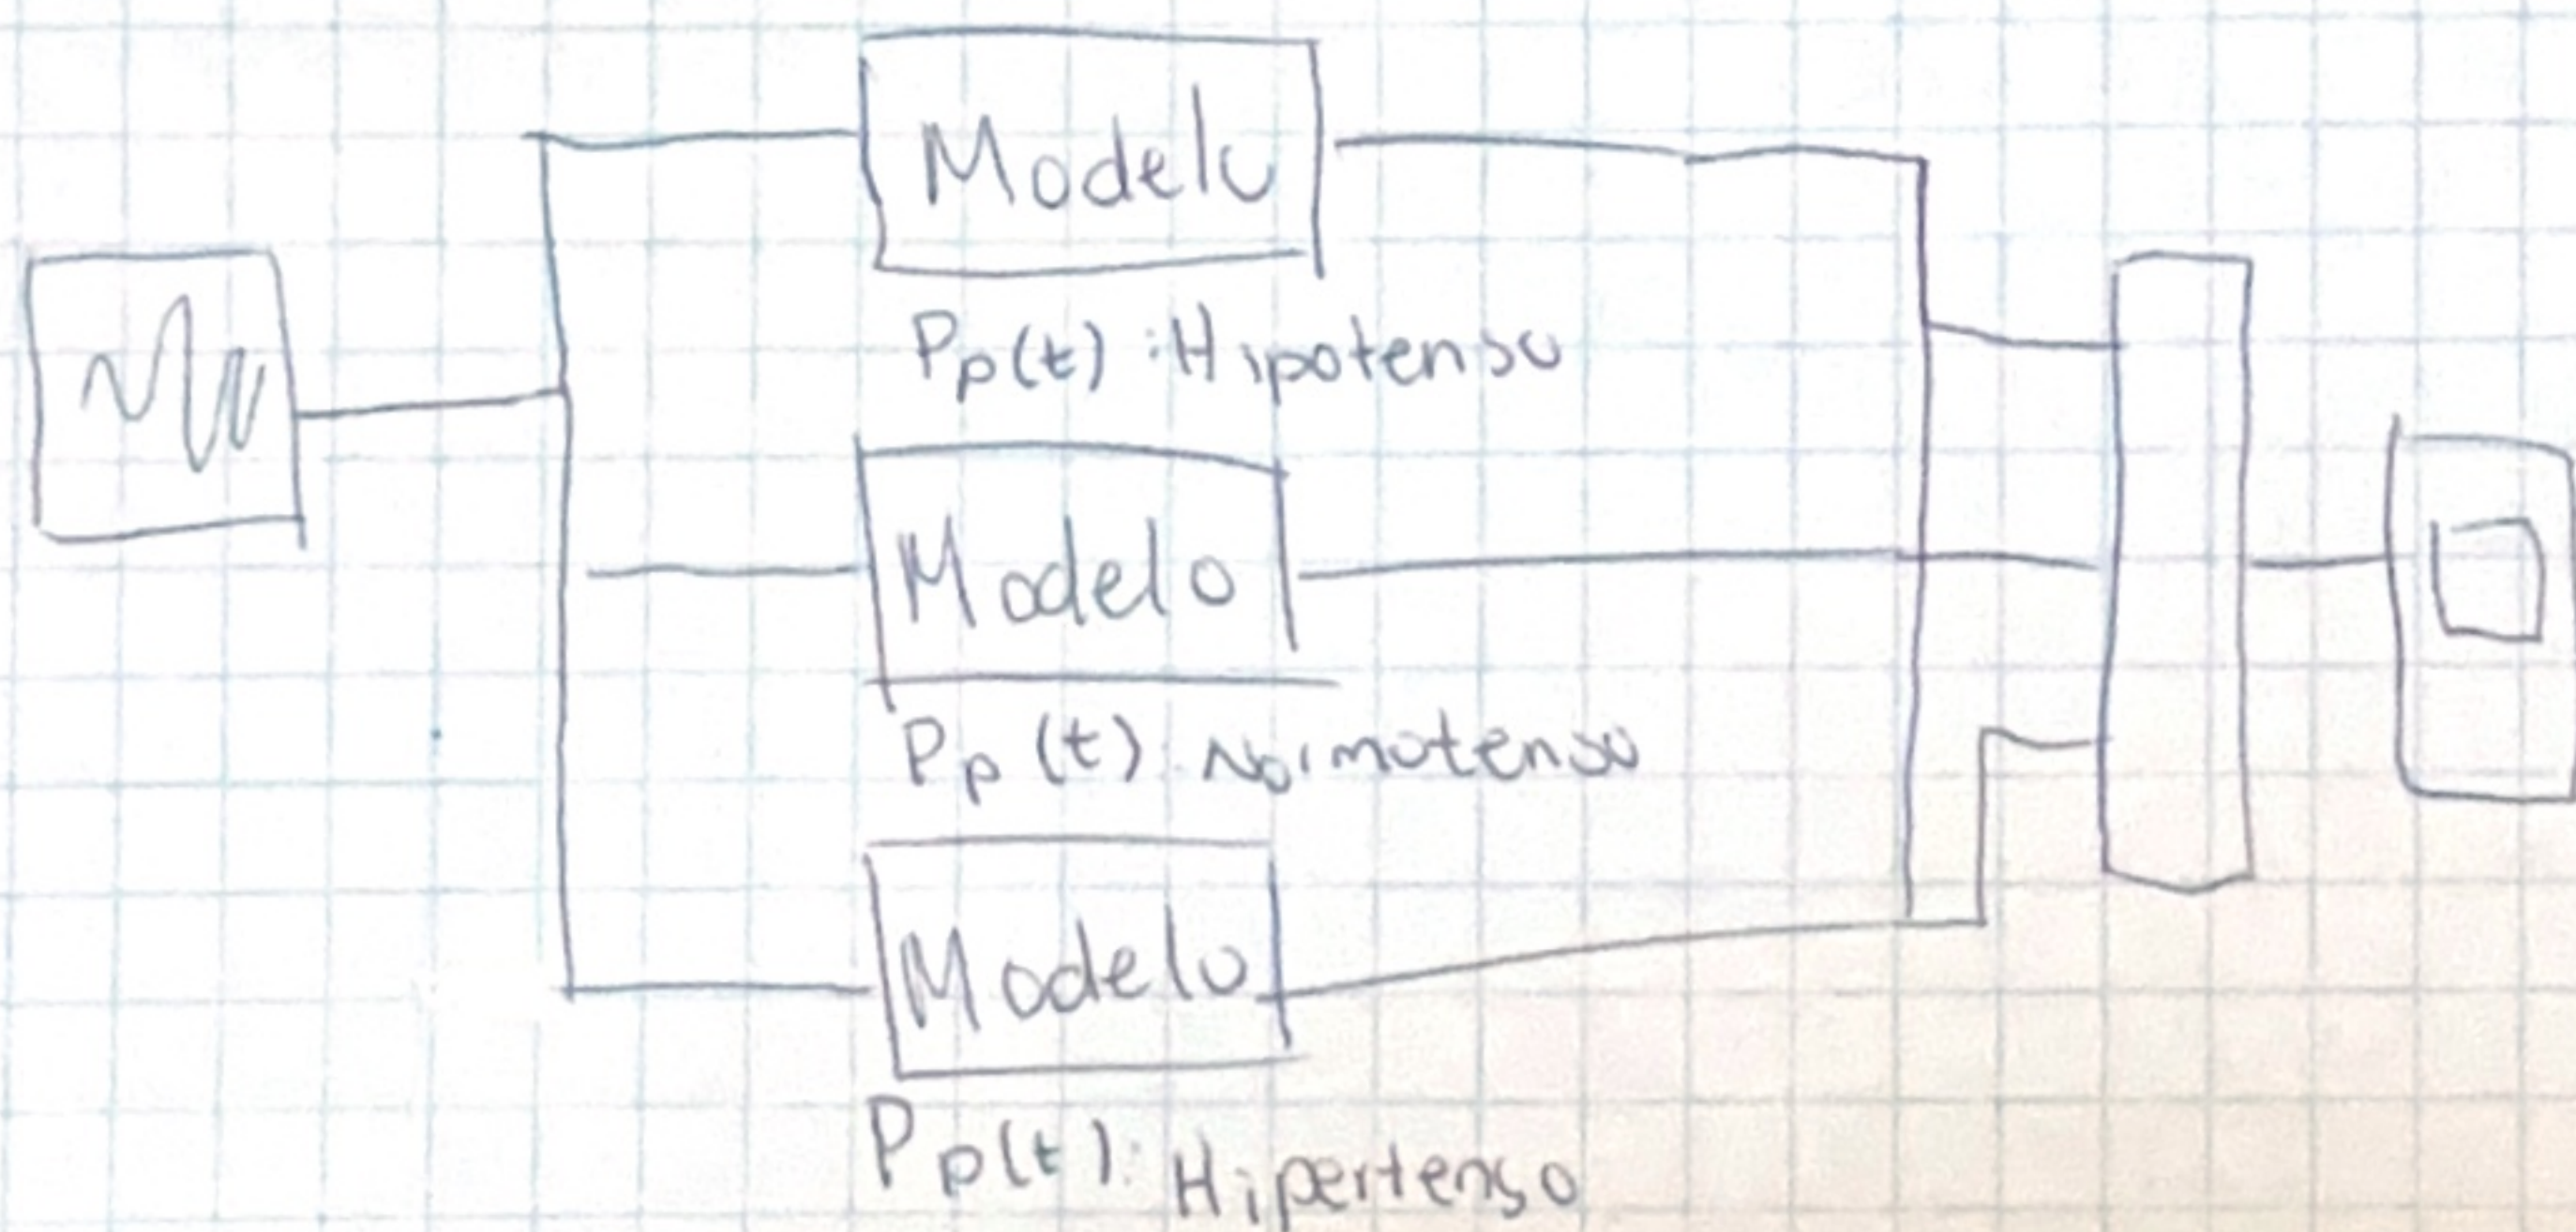 Modelo
Pp(t) : Hipotenso
Modelo
Pp (t) : Normotenso
Modelo
Pp(t) : Hipertenso